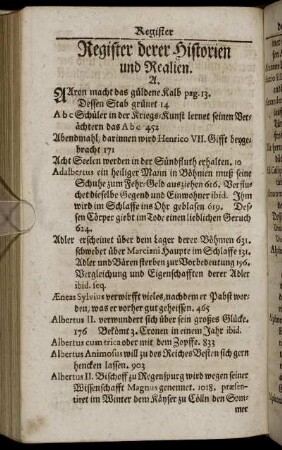 Register
Register derer Historien
und Realien.
A.
AAron macht das güldene Kalb pag. 13.
Dessen Stab grünet 14
A b c Schüler in der Kriegs-Kunst lernet seinen Ver-
ächtern das A b c 452
Abendmahl, darinnen wird Henrico VII. Gifft beyge-
bracht 171
Acht Seelen werden in der Sündfluth erhalten. 10
Adalbertus ein heiliger Mann in Böhmen muß seine
Schuhe zum Fehr-Geld ausziehen 616. Verflu-
chet dieselbe Gegend und Einwohner ibid. Ihm
wird im Schlaffe ins Ohr geblasen 619. Des-
sen Cörper giebt im Tode einen lieblichen Geruch
624.
Adler erscheinet über dem Lager derer Böhmen 631.
schwebet über Marciani Haupte im Schlaffe 131.
Adler und Bären sterben zur Vorbedeutung 196.
Vergleichung und Eigenschafften derer Adler
ibid. seq.
Æneas Sylvius verwirfft vieles, nachdem er Pabst wor-
den, was er vorher gut geheissen. 465
Albertus II. verwundert sich über sein großes Glücke.
176 Bekömt 3. Cronen in einem Jahr ibid.
Albertus cum trica oder mit dem Zopffe. 833
Albertus Animosus will zu des Reiches Besten sich gern
hencken lassen. 903
Albertus II. Bischoff zu Regenspurg wird wegen seiner
Wissenschafft Magnus genennet. 1018. præsen-
tiret im Winter dem Käyser zu Cölln den Som-
mer